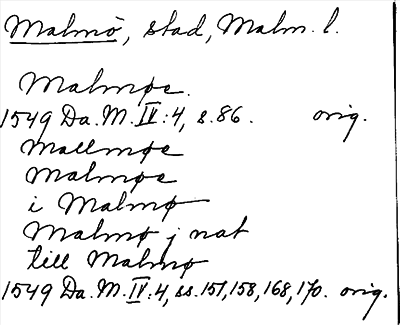 Malmö, stad, Malm. l.
Malmøe.
1549 Da. M. IV:4, s. 86. orig.
Mallmøe
Malmøe
i Malmø
Malmø j nat
till Malmø
1549 Da. M. IV:4, ss. 157, 158, 168, 170. orig.